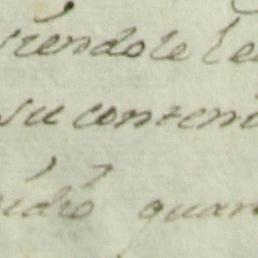 siendole le
su conteni
pidio quan